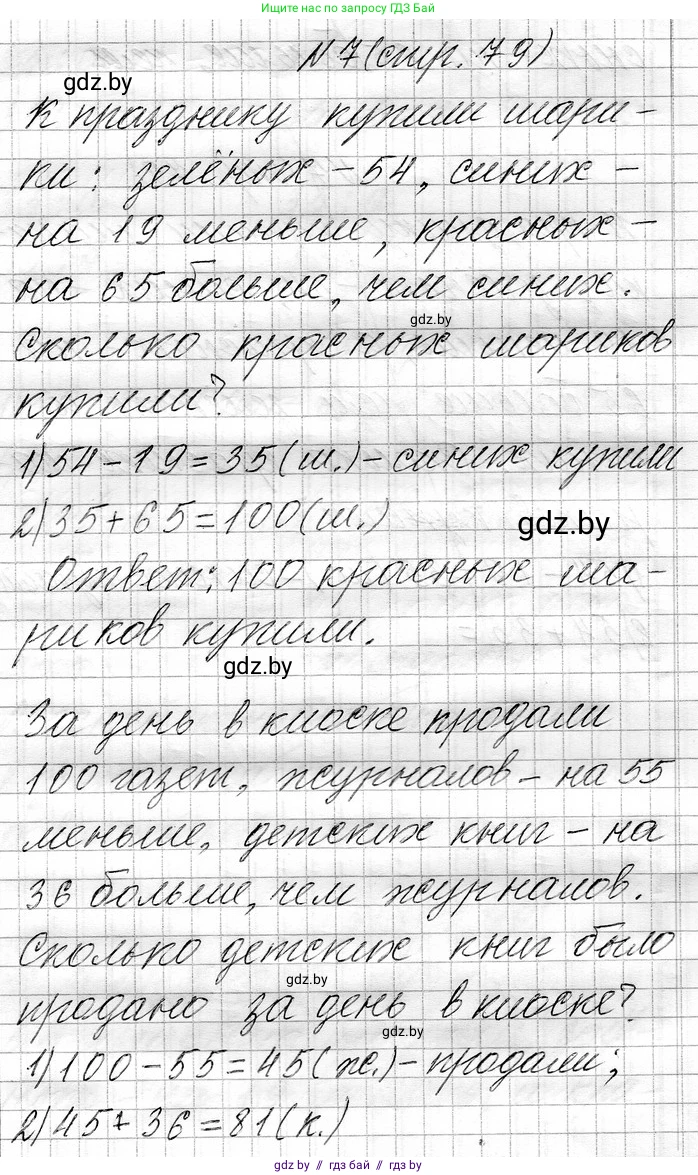 Ищите нас по запросу ГДЗ Бай
N 7 (стр. 79)
gdz.by
К празднику купили шари-
ки: зелёных - 54, синих -
на 19 меньше, красных -
на 65 больше, чем синих.
gdz.by
Сколько красных шариков
купили?
1) 54 - 19 = 35 (ш.) - синих купили
2) 35 + 65 = 100 (ш.)
gdz.by
Ответ: 100 красных ша-
риков купили.
gdz.by
За день в киоске продали
100 газет, журналов - на 55
меньше, детских книг - на
36 больше, чем журналов.
Сколько детских книг было
gdz.by
продано за день в киоске?
gdz.by
1) 100 - 55 = 45 (ж.) - продали;
2) 45 + 36 = 81 (к.)
gdz.by // гдз бай // gdz.by